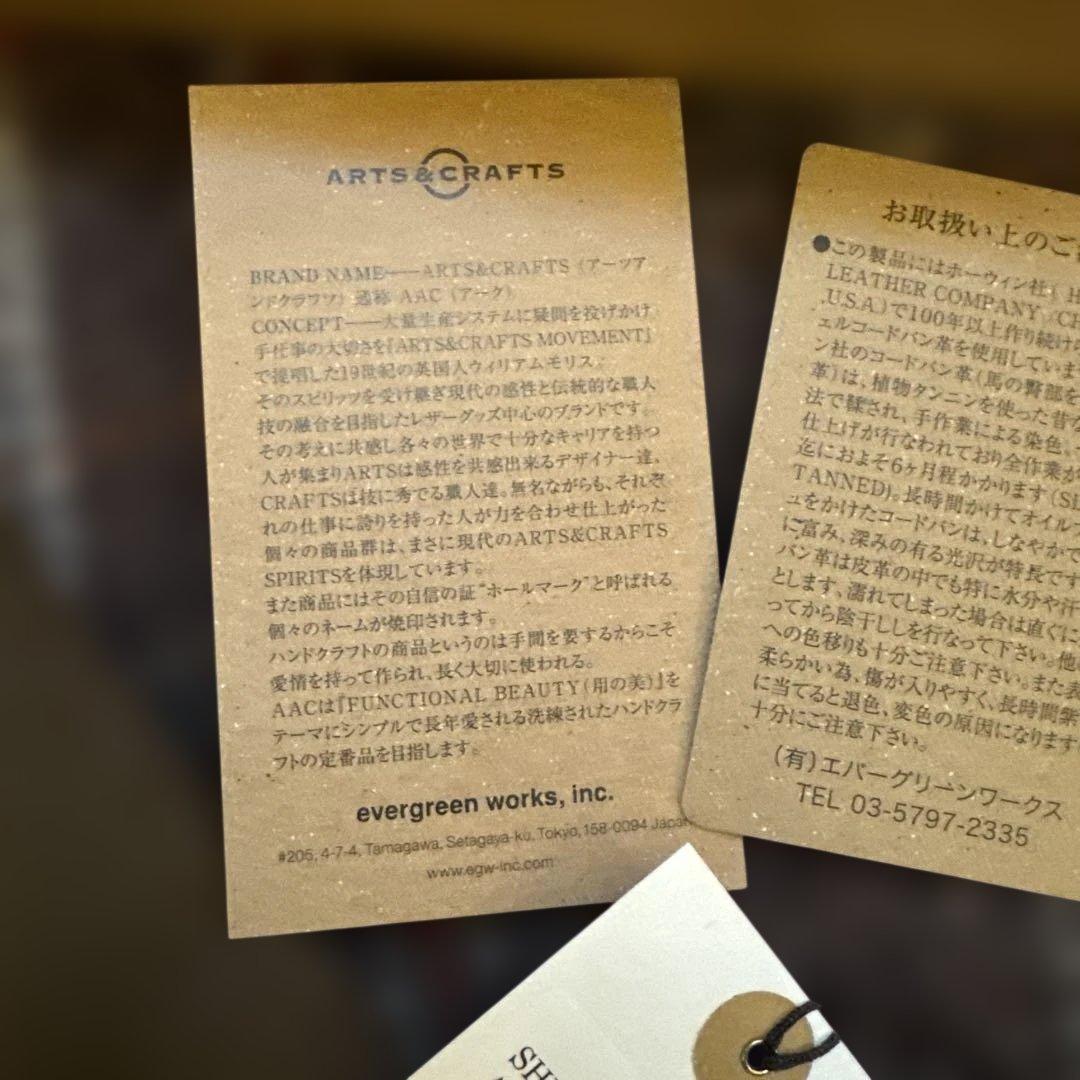 ARTS&CRAFTS
BRAND NAME――ARTS&CRAFTS（アーツア
ンドクラフツ）通称 AAC（アーク）
CONCEPT――大量生産システムに疑問を投げかけ
手仕事の大切さを『ARTS&CRAFTS MOVEMENT』
で提唱した19世紀の英国人ウィリアムモリス。
そのスピリッツを受け継ぎ現代の感性と伝統的な職人
技の融合を目指したレザーグッズ中心のブランドです。
その考えに共感し各々の世界で十分なキャリアを持つ
人が集まりARTSは感性を共感出来るデザイナー達、
CRAFTSは技に秀でる職人達。無名ながらも、それぞ
れの仕事に誇りを持った人が力を合わせ仕上がった
個々の商品群は、まさに現代のARTS&CRAFTS
SPIRITSを体現しています。
また商品にはその自信の証“ホールマーク”と呼ばれる
個々のネームが焼印されます。
ハンドクラフトの商品というのは手間を要するからこそ
愛情を持って作られ、長く大切に使われる。
AACは『FUNCTIONAL BEAUTY（用の美）』を
テーマにシンプルで長年愛される洗練されたハンドクラ
フトの定番品を目指します。
evergreen works, inc.
#205, 4-7-4, Tamagawa, Setagaya-ku, Tokyo, 158-0094 Japan
www.egw-inc.com
お取扱い上のご
●この製品にはホーウィン社（H
LEATHER COMPANY/CH
.U.S.A.）で100年以上作り続け
ェルコードバン革を使用していま
ン社のコードバン革（馬の臀部を
革）は、植物タンニンを使った昔な
法で鞣され、手作業による染色、
仕上げが行なわれており全作業が
迄におよそ6ヶ月程かかります（SL
TANNED）。長時間かけてオイル
ュをかけたコードバンは、しなやかで
に富み、深みの有る光沢が特長です
バン革は皮革の中でも特に水分や汗
とします、濡れてしまった場合は直ぐに
ってから陰干しを行なって下さい。他
への色移りも十分ご注意下さい。また表
柔らかい為、傷が入りやすく、長時間
に当てると退色、変色の原因になります
十分にご注意下さい。
（有）エバーグリーンワークス
TEL 03-5797-2335
SH